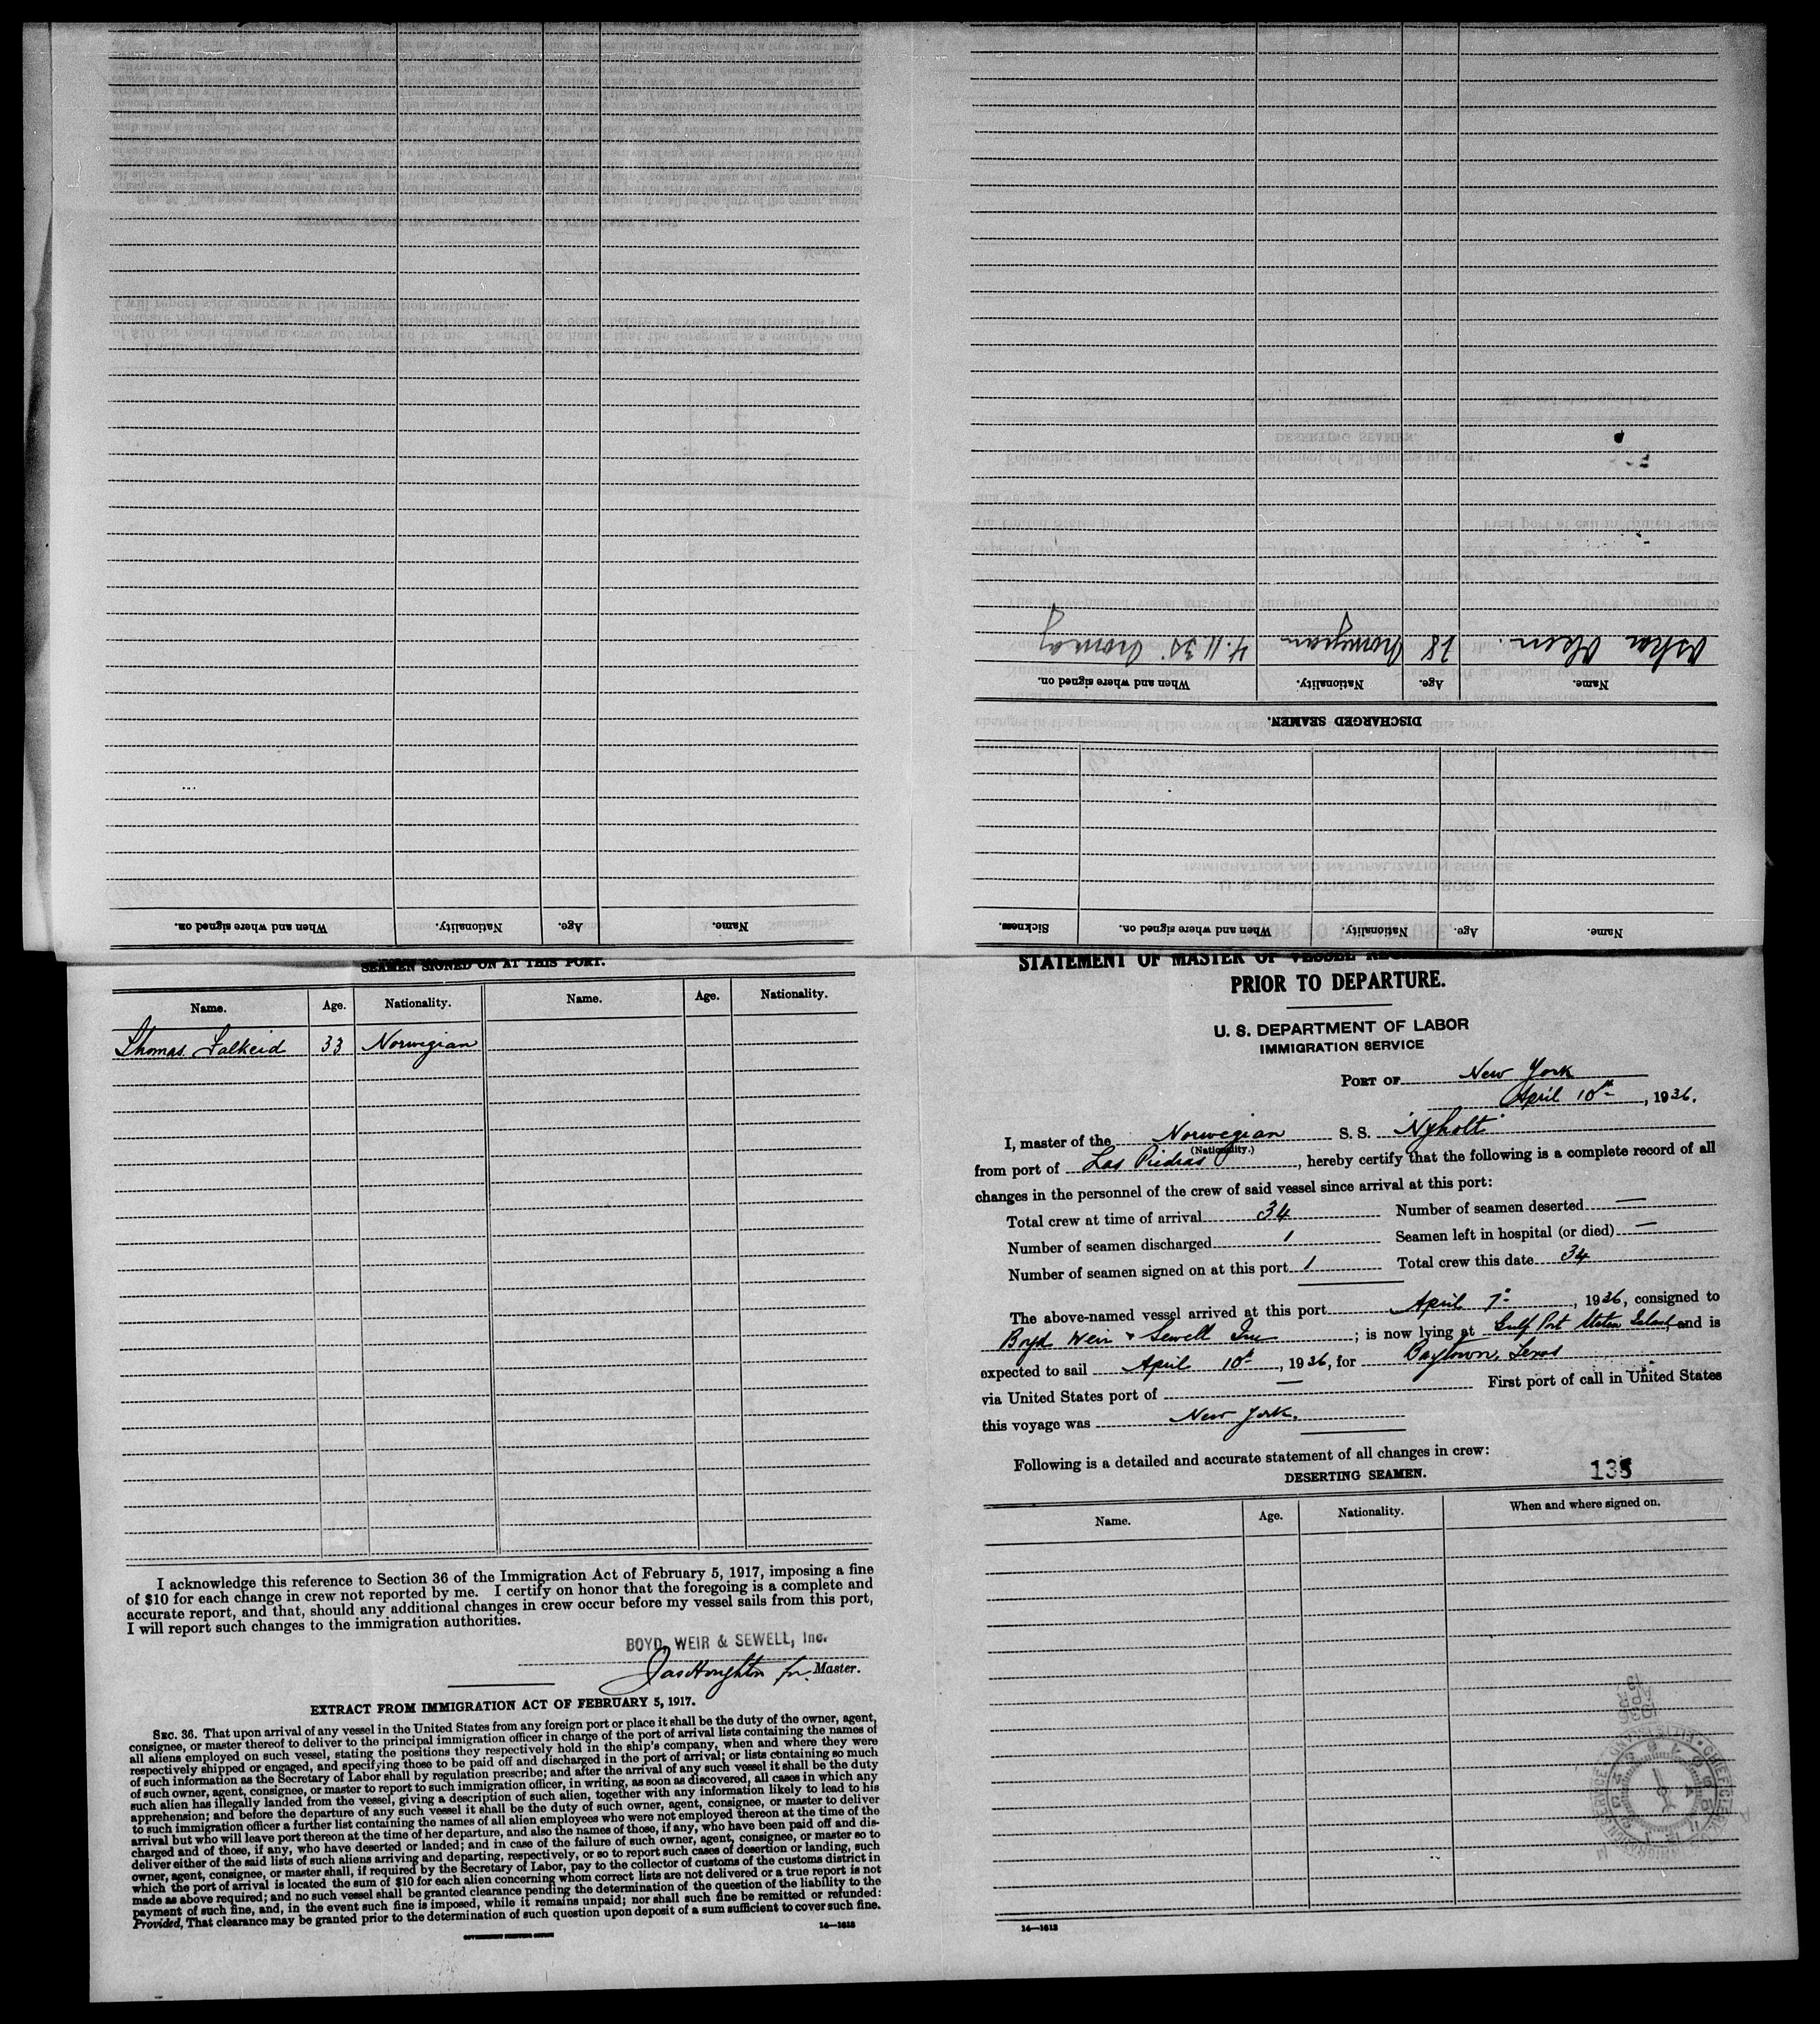 Name. Age. Nationality. When and where signed on. Sickness.
DISCHARGED SEAMEN.
Name. Age. Nationality. When and where signed on.
Oskar Olsen. 28 Norwegian 4.11.35. Norway
Name. Age. Nationality. When and where signed on.
SEAMEN SIGNED ON AT THIS PORT.
Name. Age. Nationality. Name. Age. Nationality.
Thomas Falkeid 33 Norwegian
I acknowledge this reference to Section 36 of the Immigration Act of February 5, 1917, imposing a fine
of $10 for each change in crew not reported by me. I certify on honor that the foregoing is a complete and
accurate report, and that, should any additional changes in crew occur before my vessel sails from this port,
I will report such changes to the immigration authorities.
BOYD, WEIR & SEWELL, Inc.
Jas Houghton for Master.
EXTRACT FROM IMMIGRATION ACT OF FEBRUARY 5, 1917.
SEC. 36. That upon arrival of any vessel in the United States from any foreign port or place it shall be the duty of the owner, agent,
consignee, or master thereof to deliver to the principal immigration officer in charge of the port of arrival lists containing the names of
all aliens employed on such vessel, stating the positions they respectively hold in the ship's company, when and where they were
respectively shipped or engaged, and specifying those to be paid off and discharged in the port of arrival; or lists containing so much
of such information as the Secretary of Labor shall by regulation prescribe; and after the arrival of any such vessel it shall be the duty
of such owner, agent, consignee, or master to report to such immigration officer, in writing, as soon as discovered, all cases in which any
such alien has illegally landed from the vessel, giving a description of such alien, together with any information likely to lead to his
apprehension; and before the departure of any such vessel it shall be the duty of such owner, agent, consignee, or master to deliver
to such immigration officer a further list containing the names of all alien employees who were not employed thereon at the time of the
arrival but who will leave port thereon at the time of her departure, and also the names of those, if any, who have been paid off and dis-
charged and of those, if any, who have deserted or landed; and in case of the failure of such owner, agent, consignee, or master so to
deliver either of the said lists of such aliens arriving and departing, respectively, or so to report such cases of desertion or landing, such
owner, agent, consignee, or master shall, if required by the Secretary of Labor, pay to the collector of customs of the customs district in
which the port of arrival is located the sum of $10 for each alien concerning whom correct lists are not delivered or a true report is not
made as above required; and no such vessel shall be granted clearance pending the determination of the question of the liability to the
payment of such fine, and, in the event such fine is imposed, while it remains unpaid; nor shall such fine be remitted or refunded:
Provided, That clearance may be granted prior to the determination of such question upon deposit of a sum sufficient to cover such fine.
14—1618
GOVERNMENT PRINTING OFFICE
STATEMENT OF MASTER OF VESSEL
PRIOR TO DEPARTURE.
U. S. DEPARTMENT OF LABOR
IMMIGRATION SERVICE
PORT OF New York
April 10th, 1936.
I, master of the Norwegian S. S. "Nyholt"
(Nationality.)
from port of Las Piedras, hereby certify that the following is a complete record of all
changes in the personnel of the crew of said vessel since arrival at this port:
Total crew at time of arrival 34 Number of seamen deserted —
Number of seamen discharged 1 Seamen left in hospital (or died) —
Number of seamen signed on at this port 1 Total crew this date 34
The above-named vessel arrived at this port April 7th, 1936, consigned to
Boyd Weir & Sewell Inc; is now lying at Gulf Port Staten Island, and is
expected to sail April 10th, 1936, for Baytown, Texas
via United States port of — First port of call in United States
this voyage was New York.
Following is a detailed and accurate statement of all changes in crew:
DESERTING SEAMEN.
135
Name. Age. Nationality. When and where signed on.
1936
APR
13
14—1618